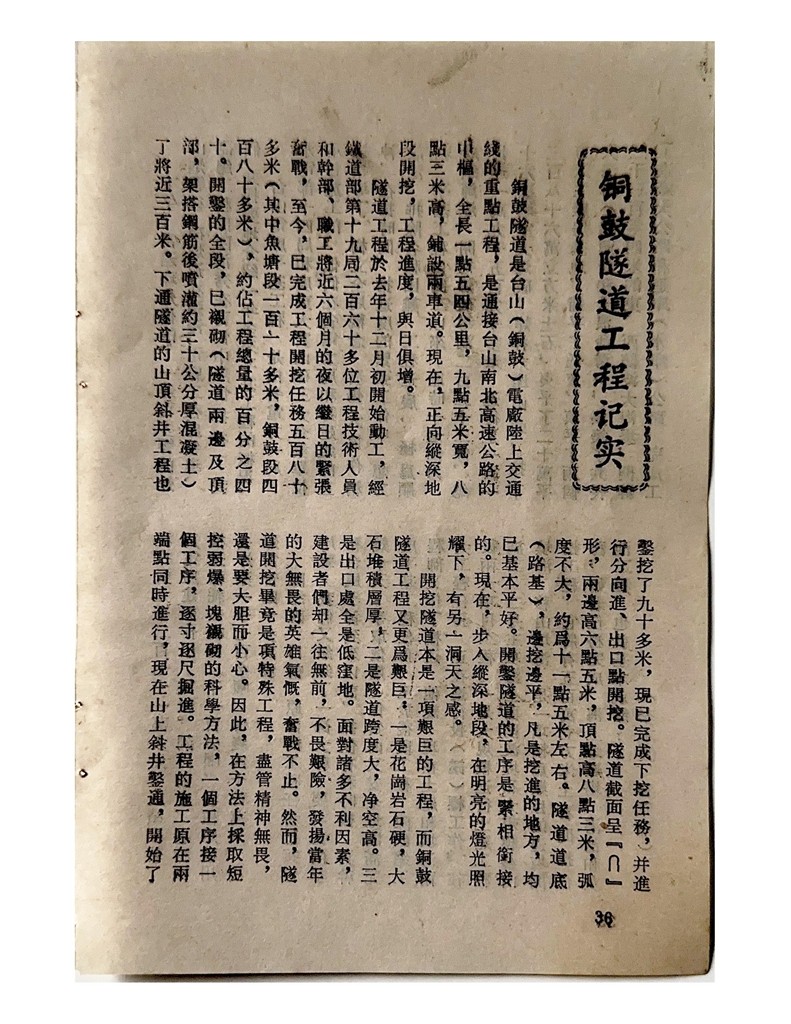 铜鼓隧道工程记实
銅鼓隧道是台山（銅鼓）電廠陸上交通
綫的重點工程，是通接台山南北高速公路的
中樞，全長一點五四公里，九點五米寬，八
點三米高，鋪設兩車道。現在，正向縱深地
段開挖，工程進度，與日俱增。
隧道工程於去年十二月初開始動工，經
鐵道部第十九局二百六十多位工程技術人員
和幹部、職工將近六個月的夜以繼日的緊張
奮戰，至今，已完成工程開挖任務五百八十
多米（其中魚塘段一百一十多米，銅鼓段四
百八十多米），約佔工程總量的百分之四
十。開鑿的全段，已襯砌（隧道兩邊及頂
部，架搭鋼筋後噴灌約三十公分厚混凝土）
了將近三百米。下通隧道的山頂斜井工程也
鑿挖了九十多米，現已完成下挖任務，并進
行分向進、出口點開挖。隧道截面呈『∩』
形，兩邊高六點五米，頂點高八點三米，弧
度不大，約爲十一點五米左右。隧道道底
（路基），邊挖邊平，凡是挖進的地方，均
已基本平好。開鑿隧道的工序是緊相銜接
的。現在，步入縱深地段，在明亮的燈光照
耀下，有另一洞天之感。
開挖隧道本是一項艱巨的工程，而銅鼓
隧道工程又更爲艱巨：一是花崗岩石硬，大
石堆積層厚，二是隧道跨度大，净空高。三
是出口處全是低窪地。面對諸多不利因素，
建設者們却一往無前，不畏艱險，發揚當年
的大無畏的英雄氣慨，奮戰不止。然而，隧
道開挖畢竟是項特殊工程，盡管精神無畏，
還是要大胆而小心。因此，在方法上採取短
挖弱爆、塊襯砌的科學方法，一個工序接一
個工序，逐寸逐尺掘進。工程的施工原在兩
端點同時進行，現在山上斜井鑿通，開始了
36